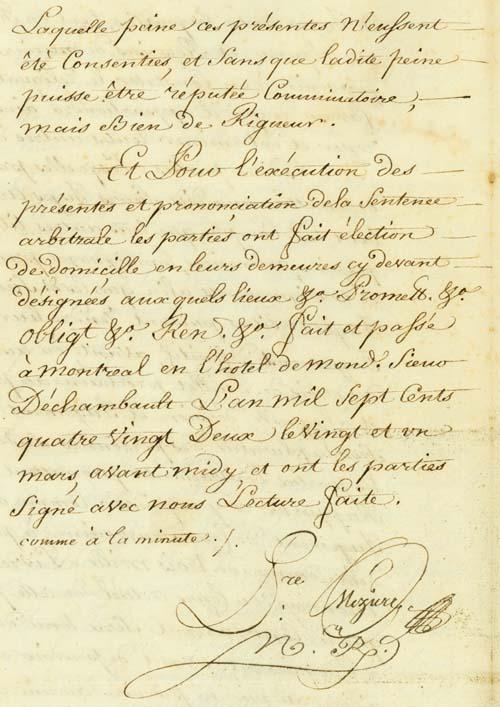 Laquelle peine ces présentes N'eussent
été Consenties, et Sans que ladite peine
puisse être réputée Comminatoire,
mais Bien de Rigueur.
Et Pour l'exécution des
présentes et prononciation dela Sentence
arbitrale les parties, ont fait élection
de domicille en leurs demeures cy devant
désignées aux quels lieux &c. Promett. &c.
obligt &c. Ren. &c. Fait et passé
à montreal en l'hotel demond. Sieur
Déchambault L'an mil Sept Cents
quatre Vingt Deux le Vingt et un
mars, avant midy et ont les parties
Signé avec nous Lecture faite.
comme à la minute ./.
Pre Mézière
N. P.